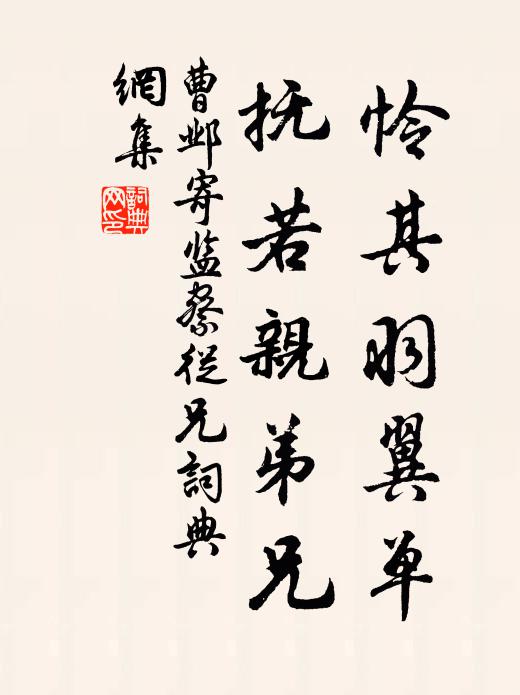 怜其羽翼单
抚若親弟兄
曹邺寄监察從兄詞典
網集
詞典网印